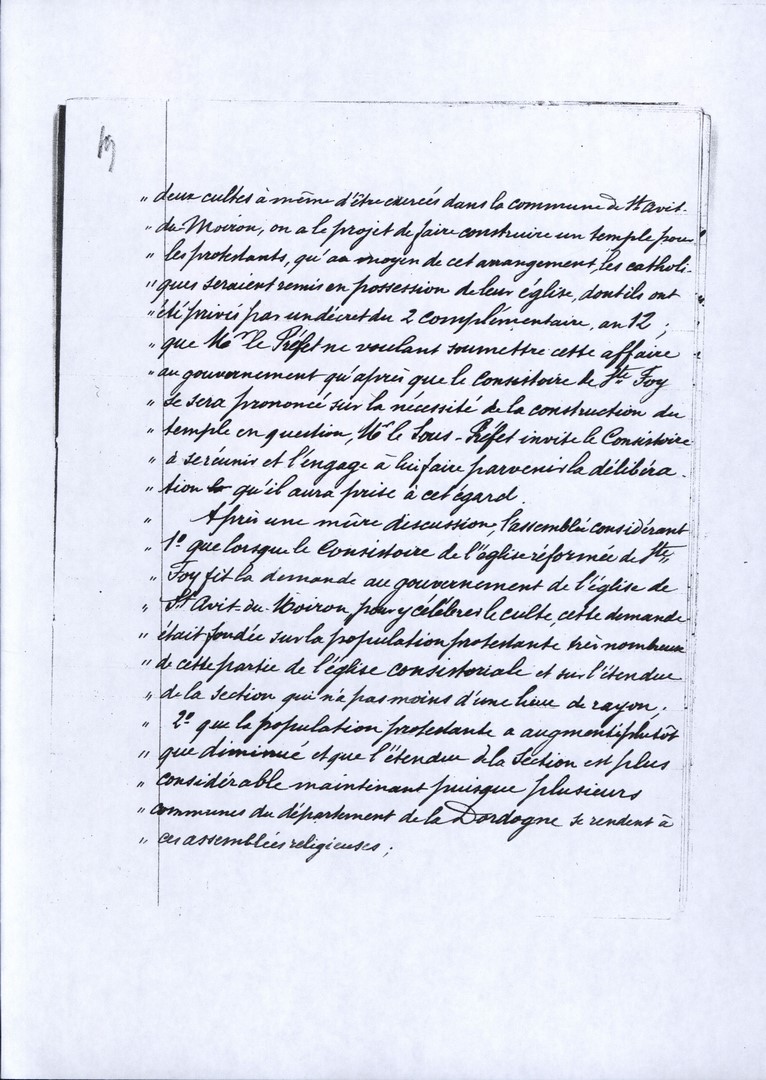 19
" deux cultes à même d'être exercés dans la commune de St Avit-
" du Moiron, on a le projet de faire construire un temple pour
" les protestants, qu'au moyen de cet arrangement, les catholi-
" ques seraient remis en possession de leur église, dont ils ont
" été privés par un décret du 2 complémentaire, an 12 ;
" que Mr le Préfet ne voulant soumettre cette affaire
" au gouvernement qu'après que le Consistoire de Ste Foy
" se sera prononcé sur la nécessité de la construction du
" temple en question, Mr le Sous-Préfet invite le Consistoire
" à se réunir et l'engage à lui faire parvenir la délibéra-
" tion qu'il aura prise à cet égard.
" Après une mûre discussion, l'assemblée considérant
" 1° que lorsque le Consistoire de l'église réformée de Ste
" Foy fit la demande au gouvernement de l'église de
" St Avit du Moiron pour y célébrer le culte, cette demande
" était fondée sur la population protestante très nombreuse
" de cette partie de l'église consistoriale et sur l'étendue
" de la section qui n'a pas moins d'une lieue de rayon.
" 2° que la population protestante a augmenté plutôt
" que diminué et que l'étendue de la section est plus
" considérable maintenant puisque plusieurs
" communes du département de la Dordogne se rendent à
" ces assemblées religieuses ;